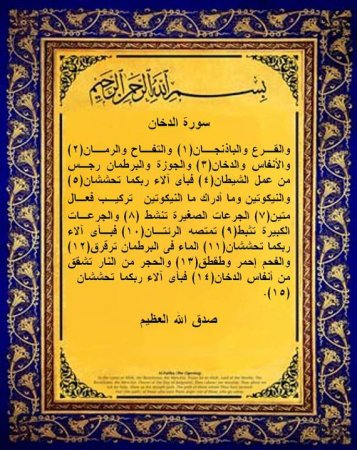 بسم الله الرحمن الرحيم
سورة الدخان
والقرع والباذنجان(١) والتفاح والرمان(٢)
والأنفاس والدخان(٣) والجوزة والبرطمان رجس
من عمل الشيطان(٤) فبأى آلاء ربكما تحششان(٥)
والنيكوتين وما أدراك ما النيكوتين تركيب فعال
متين(٧) الجرعات الصغيرة تنشط (٨) والجرعات
الكبيرة تثبط(٩) تمتصه الرئتان(١٠) فبأى آلاء
ربكما تحششان(١١) الماء فى البرطمان ترقرق(١٢)
والفحم إحمر وطقطق(١٣) والحجر من النار تشقق
من أنفاس الدخان(١٤) فبأى آلاء ربكما تحششان
(١٥).
صدق الله العظيم
Al-Fatiha (The Opening)